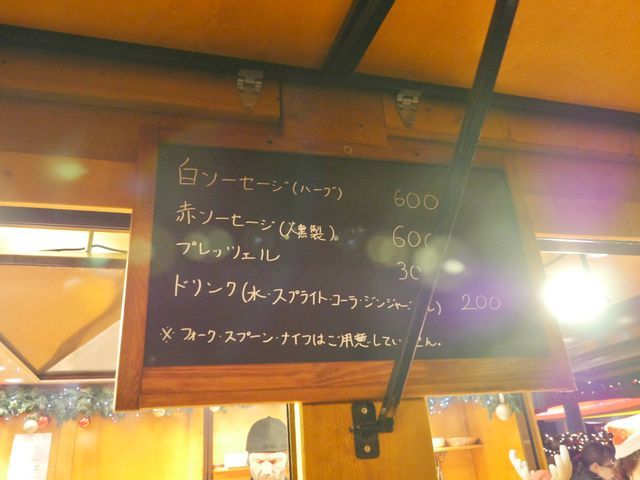 白ソーセージ(ハーブ) 600
赤ソーセージ(燻製) 600
プレッツェル 30
ドリンク(水・スプライト・コーラ・ジンジャー ル) 200
※フォーク・スプーン・ナイフはご用意していません。